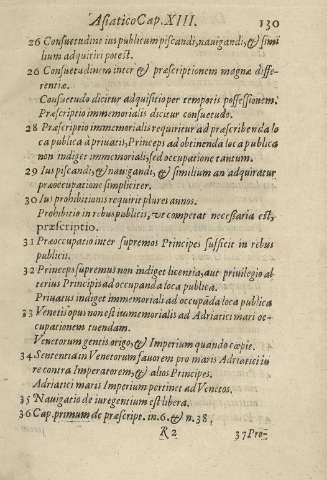 Asiatico Cap. XIII. 130
26 Consuetudine ius publicum piscandi, nauigandi, & simi
lium adquiri potest.
26 Consuetudinem inter & præscriptionem magna diffe-
rentia.
Consuetudo dicitur adquisitio per temporis possessionem.
Præscriptio immemorialis dicitur consuetudo.
28 Præscriptio immemorialis requiritur ad præscribenda lo
ca publica à priuatis, Princeps ad obtinenda loca publica
non indiget immemoriali, sed occupatione tantum.
29 Ius piscandi, & nauigandi, & similium an adquiratur
præoccupatione simpliciter.
30 Ius prohibitionis requirit plures annos.
Prohibitio in rebus publicis, vt competat necessaria est,
præscriptio.
31 Præoccupatio inter supremos Principes sufficit in rebus
publicis.
32 Princeps supremus non indiget licentia, aut priuilegio al
terius Principis ad occupanda loca publica.
Priuatus indiget immemoriali ad occupāda loca publica
33 Venetis opus non est immemorialis ad Adriatici mari oc-
cupationem tuendam.
Venetorum gentis origo, & Imperium quando cœpit.
34 Sententia in Venetorum fauorem pro maris Adriatici iu
re contra Imperatorem, & alios Principes.
Adriatici maris Imperium pertinet ad Venetos.
35 Nauigatio de iure gentium est libera.
36 Cap. primum de præscript. in. 6. & n. 38.
R 2 37 Pro-